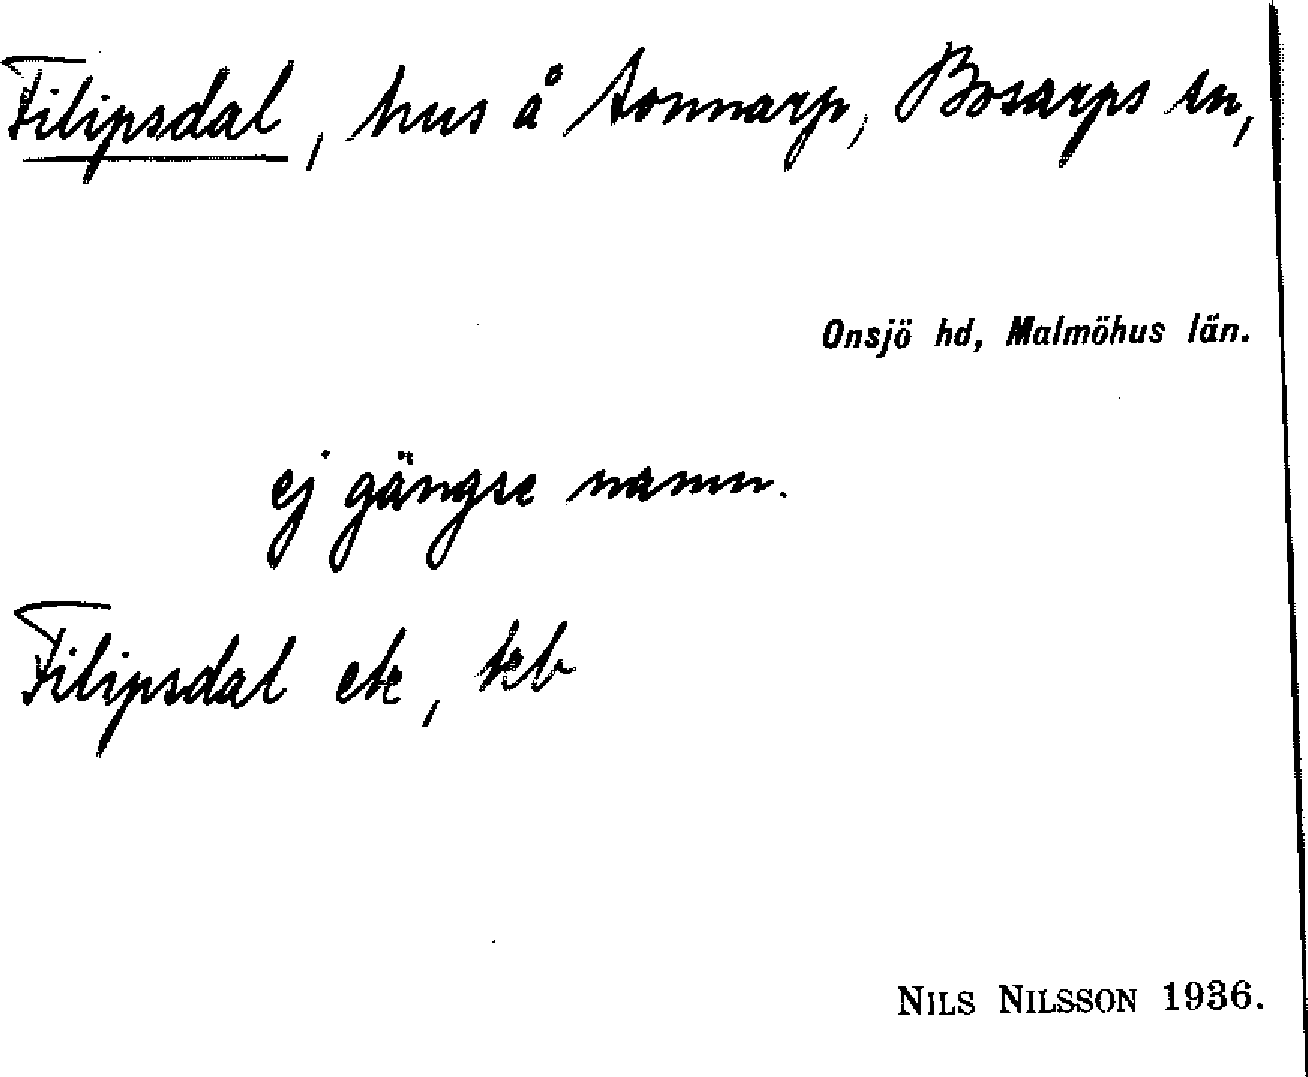 Filipsdal, hus å Aonnarp, Bosarps sn,
Onsjö hd, Malmöhus län.
ej gängse namn.
Filipsdal ek, kb
NILS NILSSON 1936.